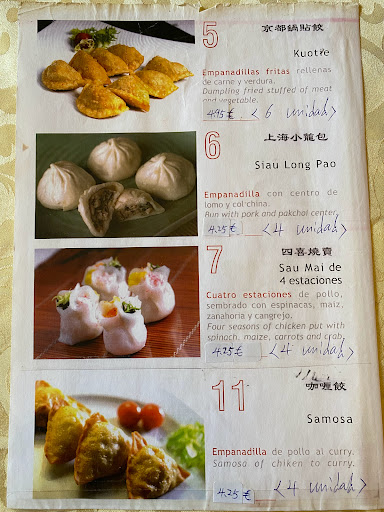 5
京都鍋貼餃
Kuotie
Empanadillas fritas rellenas
de carne y verdura.
Dumpling fried stuffed of meat
and vegetable.
4.95 € <6 unidad>
6
上海小龍包
Siau Long Pao
Empanadilla con centro de
lomo y col china.
Run with pork and pakchoi center.
4.25 € <4 unidad>
7
四喜燒賣
Sau Mai de
4 estaciones
Cuatro estaciones de pollo,
sembrado con espinacas, maiz,
zanahoria y cangrejo.
Four seasons of chicken put with
spinach, maize, carrots and crab
4.25 € <4 unidad>
11
咖喱餃
Samosa
Empanadilla de pollo al curry.
Samosa of chiken to curry.
4.25 € <4 unidad>